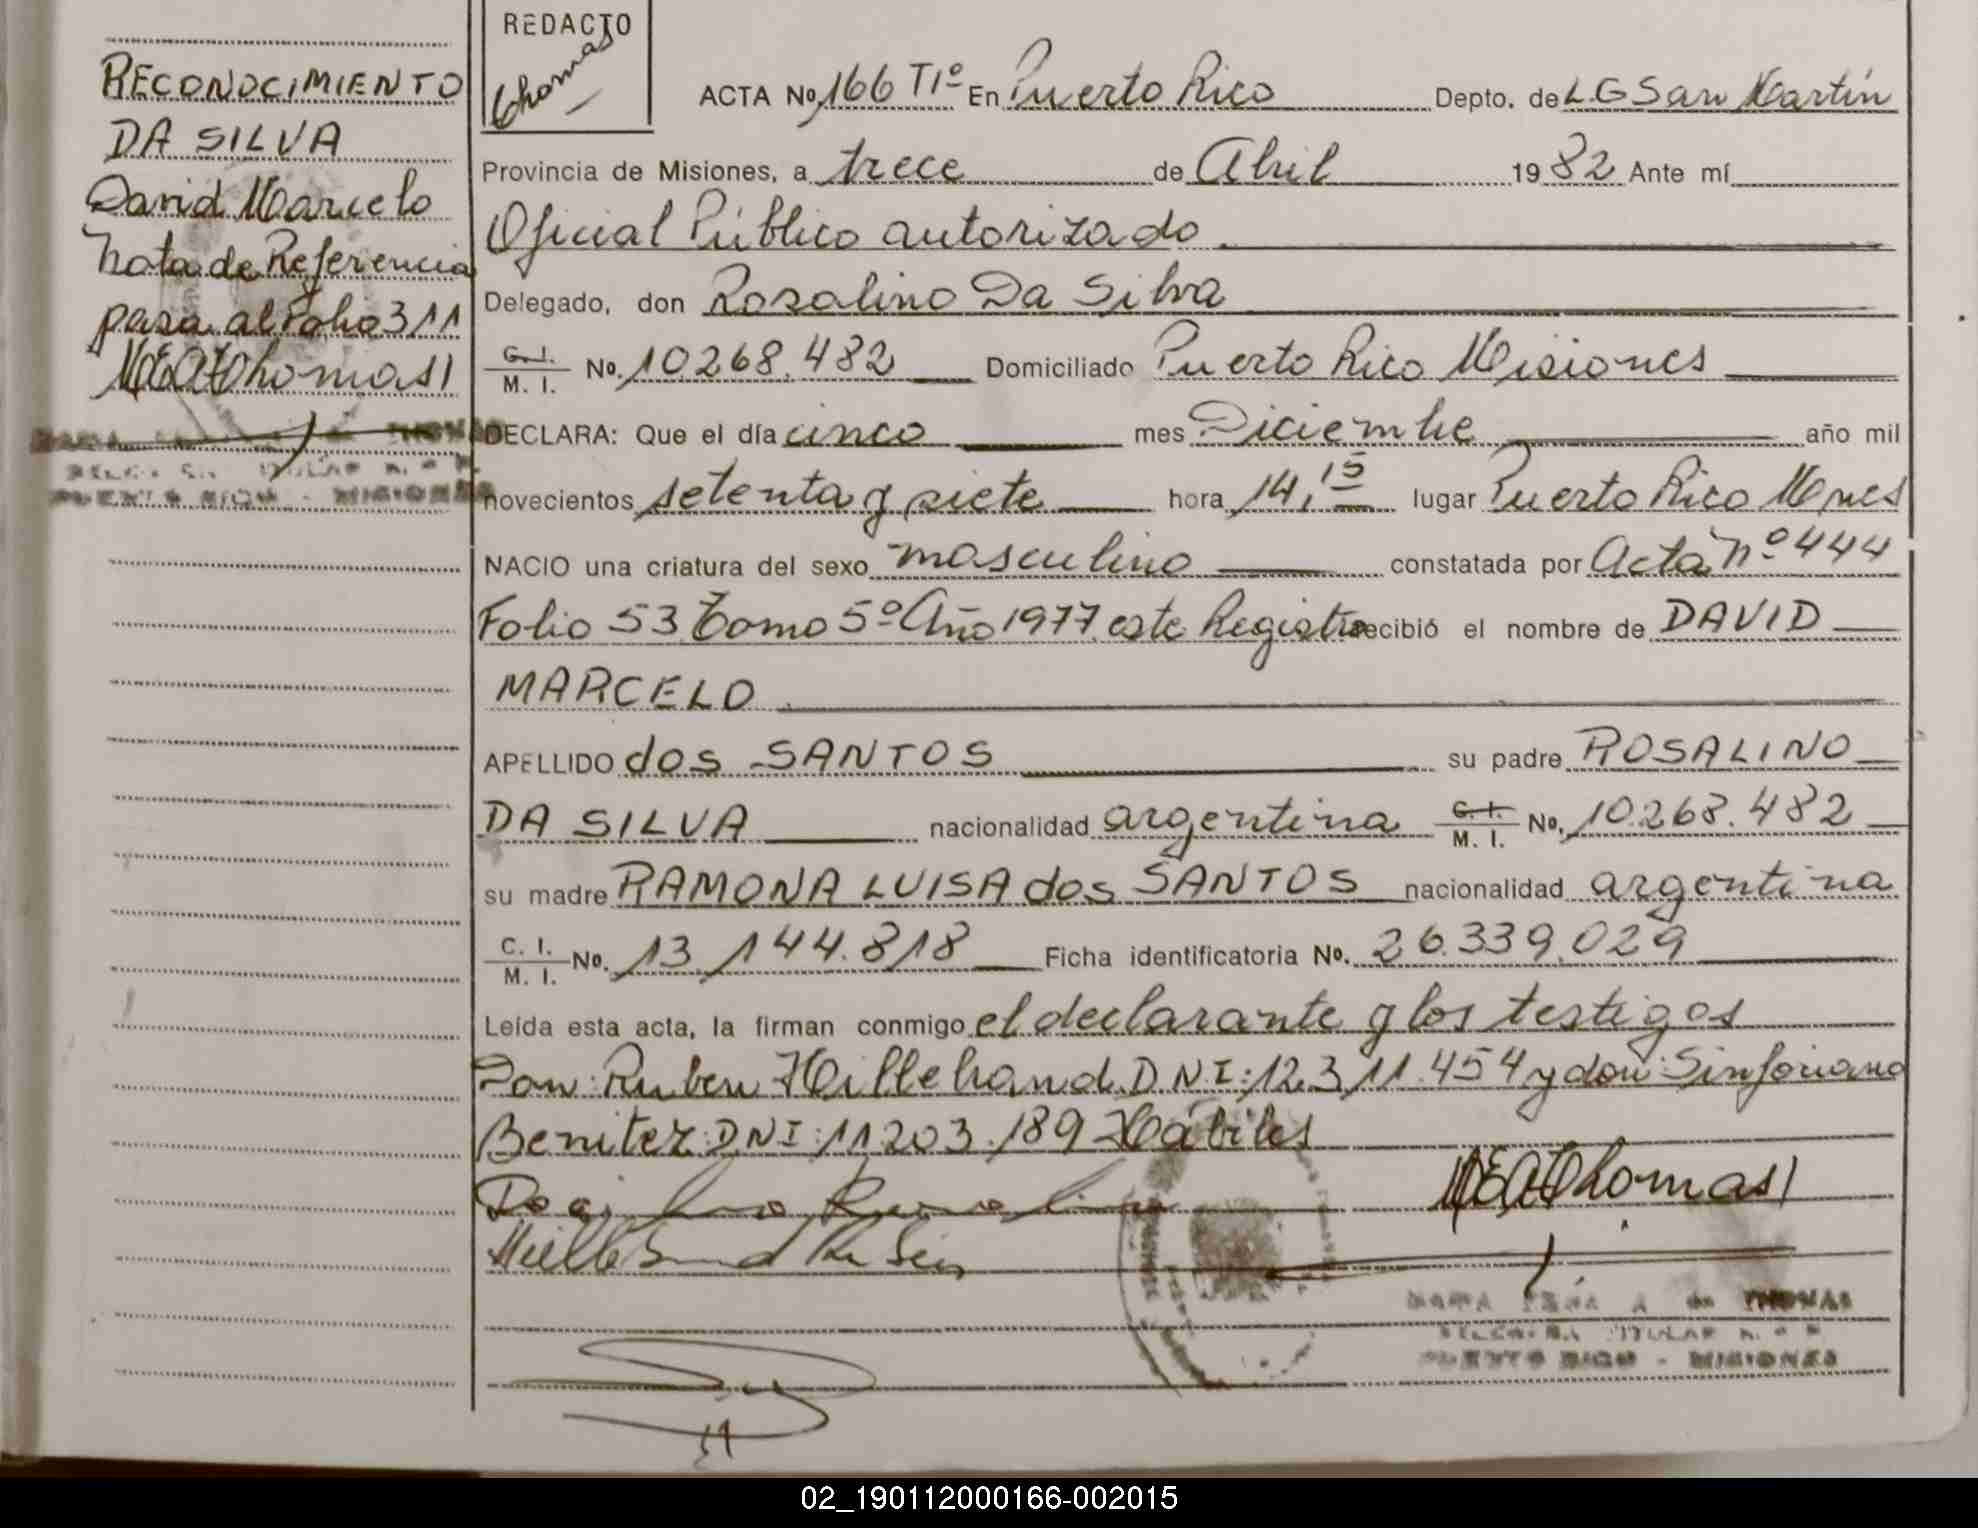 RECONOCIMIENTO
DA SILVA
David Marcelo
Nota de Referencia
para al Folio 311
MEAThomas
MARIA THOMAS
TITULAR
PUERTO RICO - MISIONES
REDACTO
Thomas
ACTA No. 166 T1º En Puerto Rico Depto. de L.G San Martín
Provincia de Misiones, a trece de Abril 1982 Ante mí
Oficial Público autorizado
Delegado, don Rosalino Da Silva
C. I. / M. I. No. 10.268.482 Domiciliado Puerto Rico Misiones
DECLARA: Que el día cinco mes Diciembre año mil
novecientos setenta y siete hora 14,15 lugar Puerto Rico Mnes
NACIO una criatura del sexo masculino constatada por Acta Nº 444
Folio 53 Tomo 5º Año 1977 este Registro recibió el nombre de DAVID
MARCELO
APELLIDO dos SANTOS su padre ROSALINO
DA SILVA nacionalidad argentina C. I. / M. I. No. 10.268.482
su madre RAMONA LUISA dos SANTOS nacionalidad argentina
C. I. / M. I. No. 13.144.818 Ficha identificatoria No. 26.339.029
Leída esta acta, la firman conmigo el declarante y los testigos
Don: Ruben Hillebrand D.N.I: 12.311.454 y don: Sinforiano
Benitez DNI: 11.203.189 Hábiles
MEAThomas
Hillebrand Ruben
MARIA A. de THOMAS
TITULAR
PUERTO RICO - MISIONES
02_190112000166-002015